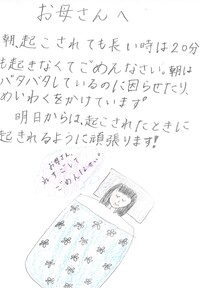 お母さんへ
朝、起こされても長い時は20分
も起きなくてごめんなさい。朝は
バタバタしているのに困らせたり、
めいわくをかけています。
明日からは、起こされたときに
起きれるように頑張ります!
お母さん、
ねすごして
ごめんなさい。